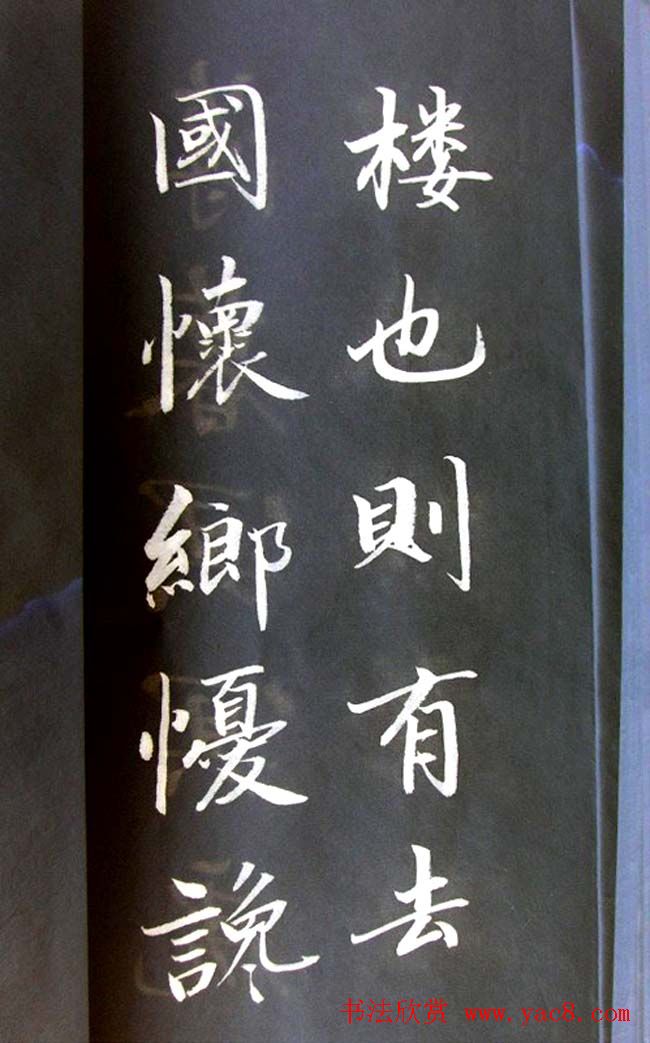 楼也則有去
國懷鄉懮讒
书法欣赏 www.yac8.com